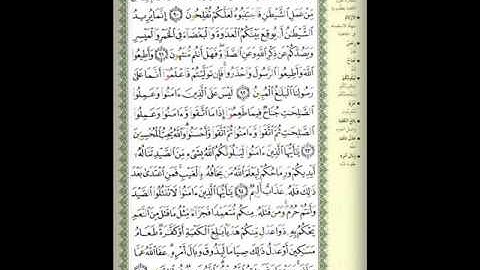 مِّنْ عَمَلِ ٱلشَّيْطَٰنِ فَٱجْتَنِبُوهُ لَعَلَّكُمْ تُفْلِحُونَ ٩٠ إِنَّمَا يُرِيدُ
ٱلشَّيْطَٰنُ أَن يُوقِعَ بَيْنَكُمُ ٱلْعَدَٰوَةَ وَٱلْبَغْضَآءَ فِى ٱلْخَمْرِ وَٱلْمَيْسِرِ
وَيَصُدَّكُمْ عَن ذِكْرِ ٱللَّهِ وَعَنِ ٱلصَّلَوٰةِ فَهَلْ أَنتُم مُّنتَهُونَ ٩١
وَأَطِيعُوا۟ ٱللَّهَ وَأَطِيعُوا۟ ٱلرَّسُولَ وَٱحْذَرُوا۟ فَإِن تَوَلَّيْتُمْ فَٱعْلَمُوٓا۟ أَنَّمَا عَلَىٰ
رَسُولِنَا ٱلْبَلَٰغُ ٱلْمُبِينُ ٩٢ لَيْسَ عَلَى ٱلَّذِينَ ءَامَنُوا۟ وَعَمِلُوا۟
ٱلصَّٰلِحَٰتِ جُنَاحٌ فِيمَا طَعِمُوٓا۟ إِذَا مَا ٱتَّقَوا۟ وَّءَامَنُوا۟ وَعَمِلُوا۟
ٱلصَّٰلِحَٰتِ ثُمَّ ٱتَّقَوا۟ وَّءَامَنُوا۟ ثُمَّ ٱتَّقَوا۟ وَّأَحْسَنُوا۟ وَٱللَّهُ يُحِبُّ ٱلْمُحْسِنِينَ
٩٣ يَٰٓأَيُّهَا ٱلَّذِينَ ءَامَنُوا۟ لَيَبْلُوَنَّكُمُ ٱللَّهُ بِشَىْءٍ مِّنَ ٱلصَّيْدِ تَنَالُهُۥٓ
أَيْدِيكُمْ وَرِمَاحُكُمْ لِيَعْلَمَ ٱللَّهُ مَن يَخَافُهُۥ بِٱلْغَيْبِ فَمَنِ ٱعْتَدَىٰ بَعْدَ
ذَٰلِكَ فَلَهُۥ عَذَابٌ أَلِيمٌ ٩٤ يَٰٓأَيُّهَا ٱلَّذِينَ ءَامَنُوا۟ لَا تَقْتُلُوا۟ ٱلصَّيْدَ
وَأَنتُمْ حُرُمٌ وَمَن قَتَلَهُۥ مِنكُم مُّتَعَمِّدًا فَجَزَآءٌ مِّثْلُ مَا قَتَلَ مِنَ ٱلنَّعَمِ
يَحْكُمُ بِهِۦ ذَوَا عَدْلٍ مِّنكُمْ هَدْيًۢا بَٰلِغَ ٱلْكَعْبَةِ أَوْ كَفَّٰرَةٌ طَعَامُ
مَسَٰكِينَ أَوْ عَدْلُ ذَٰلِكَ صِيَامًا لِّيَذُوقَ وَبَالَ أَمْرِهِۦ عَفَا ٱللَّهُ عَمَّا